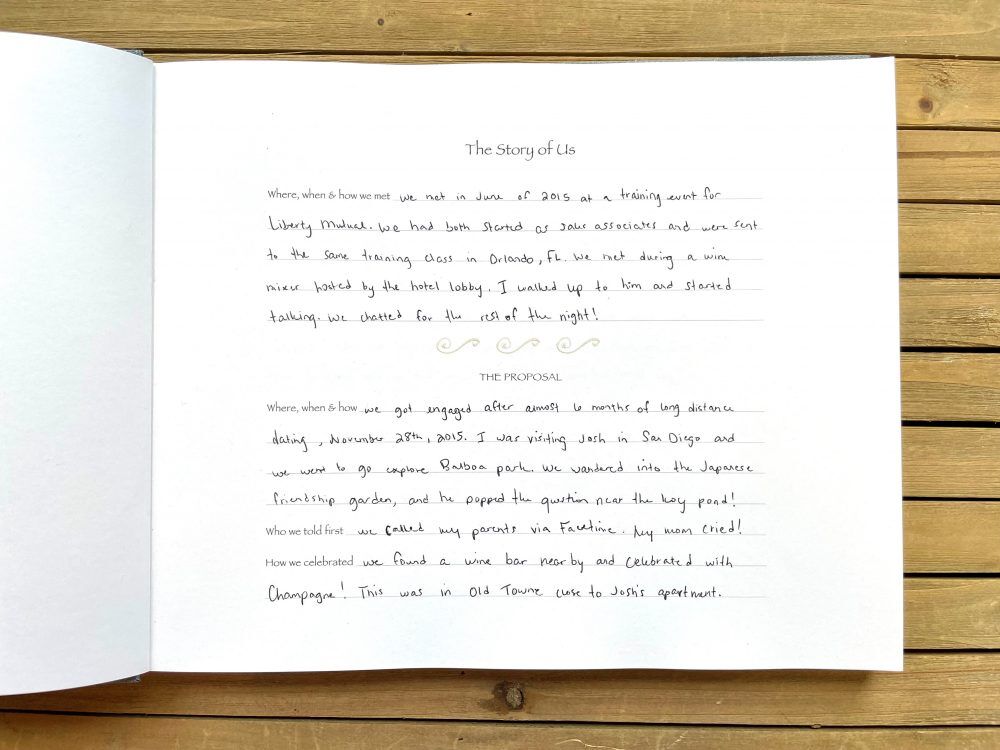 The Story of Us
Where, when & how we met we met in June of 2015 at a training event for
Liberty Mutual. We had both started as sales associates and were sent
to the same training class in Orlando, FL. We met during a wine
mixer hosted by the hotel lobby. I walked up to him and started
talking. We chatted for the rest of the night!
THE PROPOSAL
Where, when & how we got engaged after almost 6 months of long distance
dating, November 28th, 2015. I was visiting Josh in San Diego and
we went to go explore Balboa park. We wandered into the Japanese
friendship garden, and he popped the question near the koy pond!
Who we told first we called my parents via Facetime. My mom cried!
How we celebrated we found a wine bar nearby and celebrated with
Champagne! This was in Old Towne close to Josh's apartment.